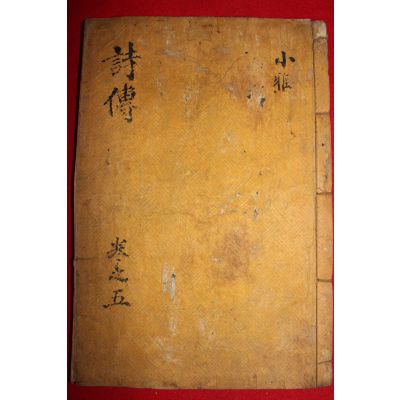 詩傳
卷之五
小雅